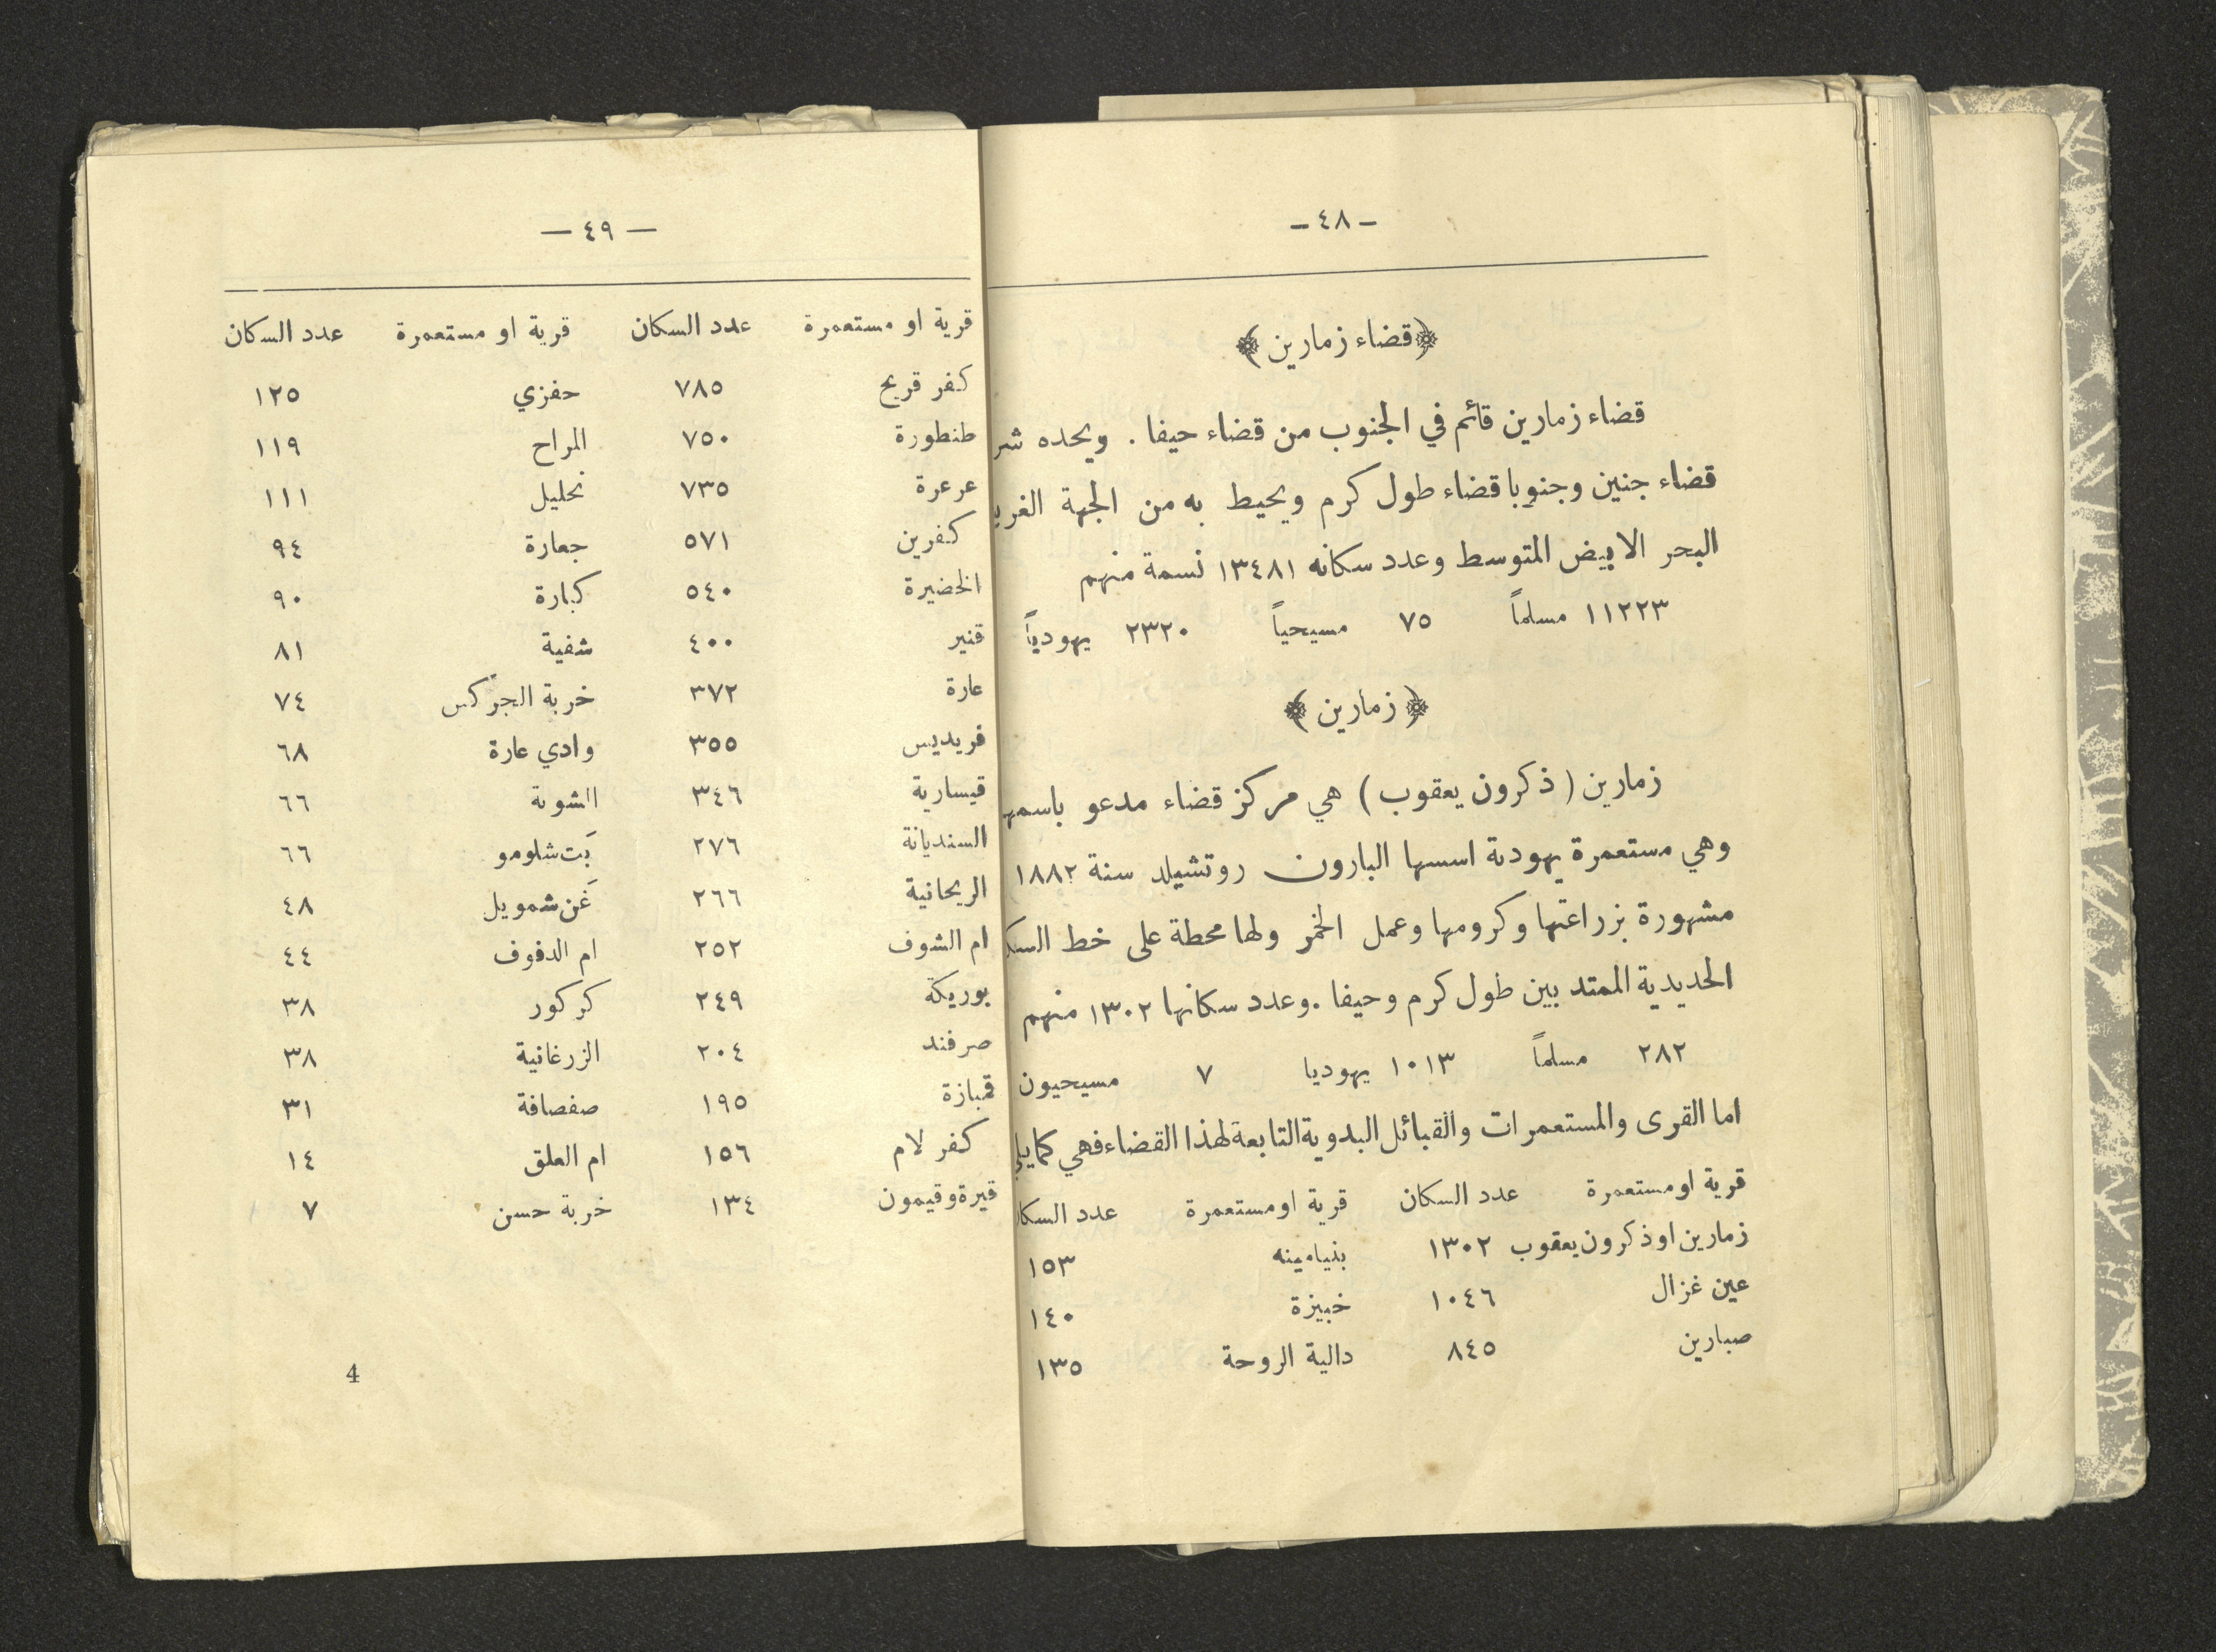 -٤٨-
﴿قضاء زمارين﴾
قضاء زمارين قائم في الجنوب من قضاء حيفا . ويحده
قضاء جنين وجنوبا قضاء طول كرم ويحيط به من الجهة
البحر الابيض المتوسط وعدد سكانه ١٣٤٨١ نسمة منهم
١١٢٢٣ مسلماً ٧٥ مسيحياً ٢٣٢٠ يهودياً
﴿زمارين﴾
زمارين (ذكرون يعقوب) هي مركز قضاء مدعو باسمها
وهي مستعمرة يهودية اسسها البارون روتشيلد سنة ١٨٨٢
مشهورة بزراعتها وكرومها وعمل الخمر ولها محطة على خط
الحديدية الممتد بين طول كرم وحيفا . وعدد سكانها ١٣٠٢ منهم
٢٨٢ مسلماً ١٠١٣ يهوديا ٧ مسيحيون
اما القرى والمستعمرات والقبائل البدوية التابعة لهذا القضاء فهي كما يلي
قرية او مستعمرة عدد السكان قرية او مستعمرة عدد السكان
زمارين او ذكرون يعقوب ١٣٠٢ بنيامينه ١٥٣
عين غزال ١٠٤٦ خبيزة ١٤٠
صبارين ٨٤٥ دالية الروحة ١٣٥
— ٤٩ —
قرية او مستعمرة عدد السكان قرية او مستعمرة عدد السكان
كفر قريح ٧٨٥ حفزي ١٢٥
طنطورة ٧٥٠ المراح ١١٩
عرعرة ٧٣٥ نحليل ١١١
كفرين ٥٧١ جعارة ٩٤
الخضيرة ٥٤٠ كبارة ٩٠
قنير ٤٠٠ شفية ٨١
عارة ٣٧٢ خربة الجركس ٧٤
فريديس ٣٥٥ وادي عارة ٦٨
قيسارية ٣٤٦ الشونة ٦٦
السنديانة ٢٧٦ بَت شلومو ٦٦
الريحانية ٢٦٦ غَن شمويل ٤٨
ام الشوف ٢٥٢ ام الدفوف ٤٤
بوريكة ٢٤٩ كركور ٣٨
صرفند ٢٠٤ الزرغانية ٣٨
قمبازة ١٩٥ صفصافة ٣١
كفر لام ١٥٦ ام العلق ١٤
قيرة وقيمون ١٣٤ خربة حسن ٧
4